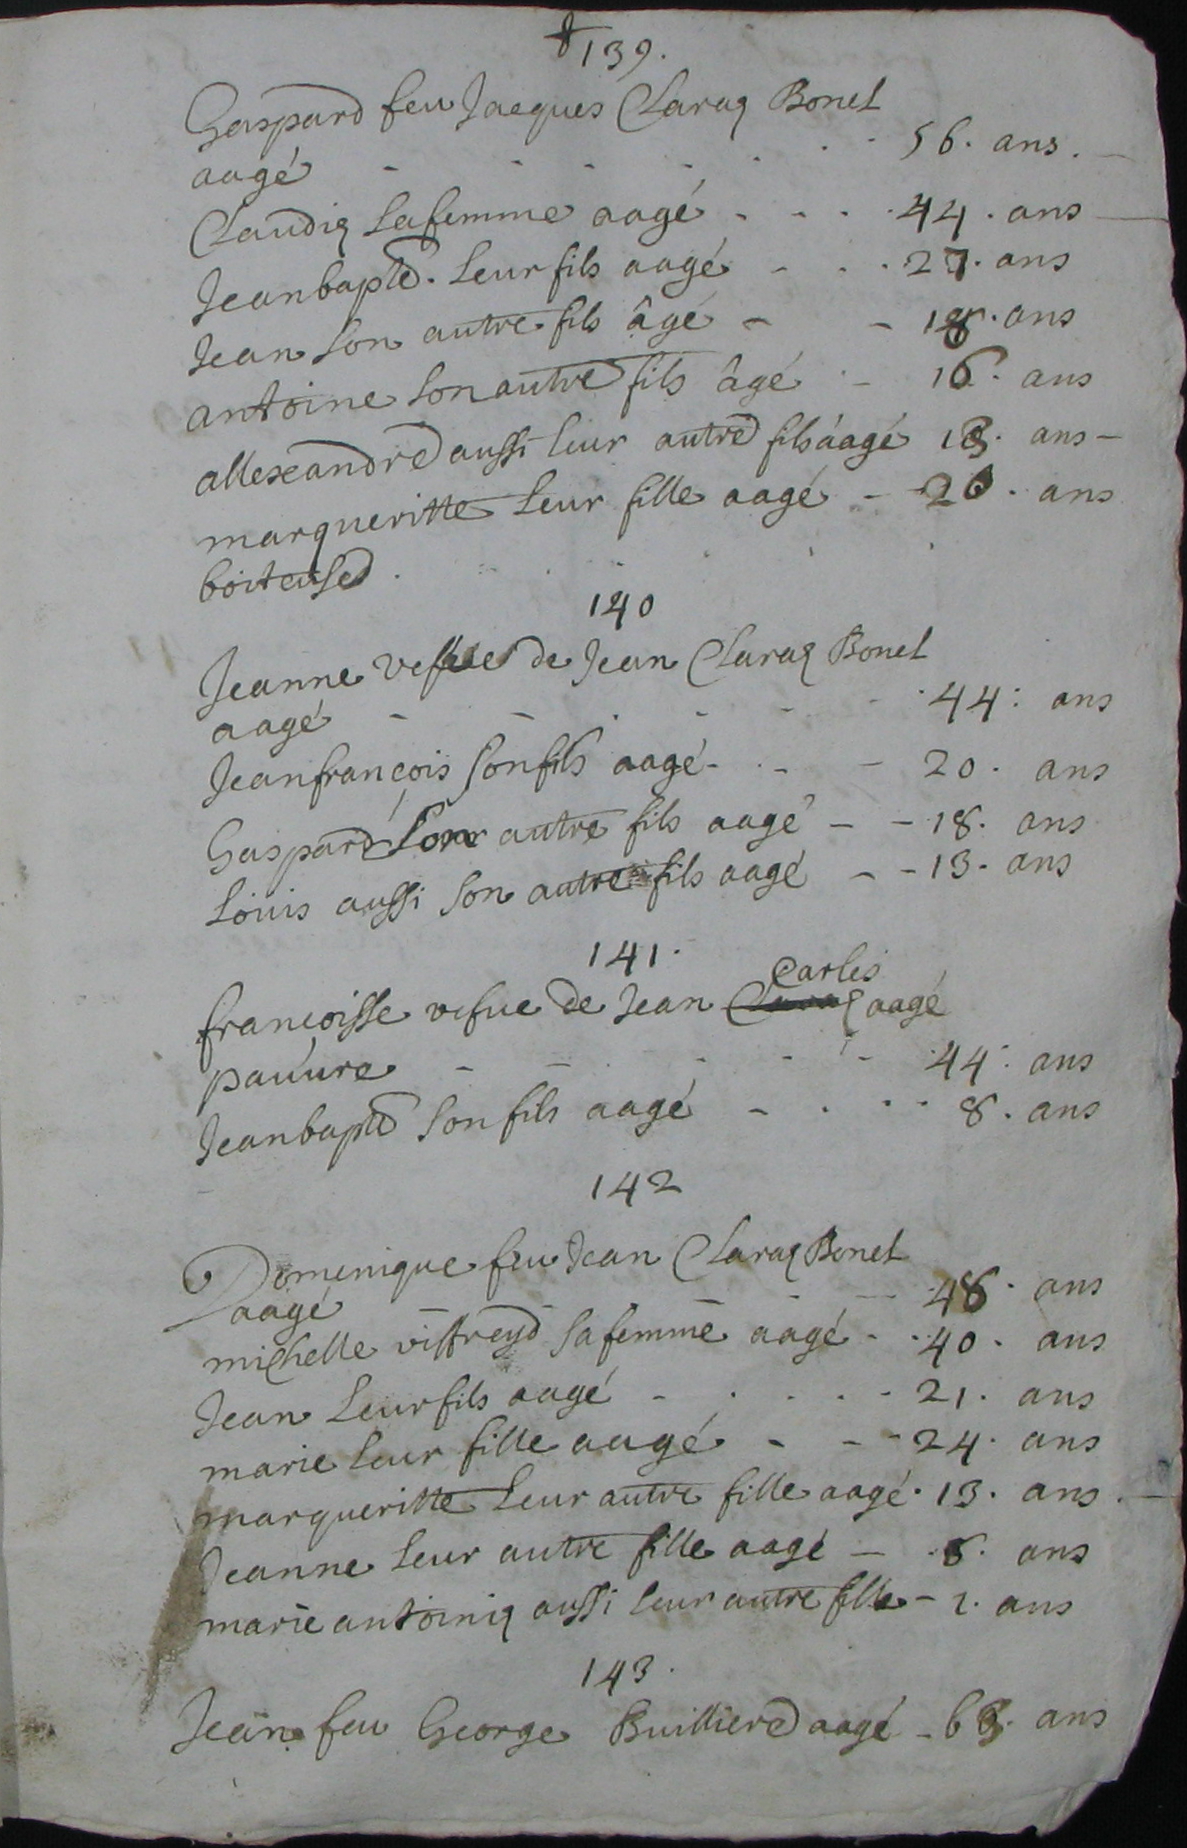 139.
Gaspard feu Jacques Claraz Bonel
aagé - - - - - - - 56. ans.
Claudiq sa femme aagé - - - - 44. ans
Jeanbaptẽ. Leur fils aagé - - - 27. ans
Jean son autre fils âgé - - 18. ans
antoine son autre fils âgé - 16. ans
allexandre aussi leur autre fils áagé 13. ans -
margueritte Leur fille aagé - 20. ans
boiteuse
140
Jeanne vefve de Jean Claraz Bonel
aagé - - - - - - 44. ans
Jeanfrançois son fils aagé - - - 20. ans
Gaspard Son autre fils aagé - - 18. ans
Louis aussi son autre fils aagé - - 13. ans
141.
Carles
francoisse vefue de Jean aagé
pauure - - - - - - 44. ans
Jeanbaptẽ son fils aagé - - - - 8. ans
142
Domenique feu Jean Claraz Bonel
aagé - - - - - 48. ans
michelle viffreyd sa femme aagé - - 40. ans
Jean Leur fils aagé - - - - - 21. ans
marie leur fille aagé - - - 24. ans
margueritte Leur autre fille aagé - 13. ans.
Jeanne leur autre fille aagé - 8. ans
marie antoiniq aussi leur autre fille - 2. ans
143.
Jean feu George Buillierd aagé - 63. ans